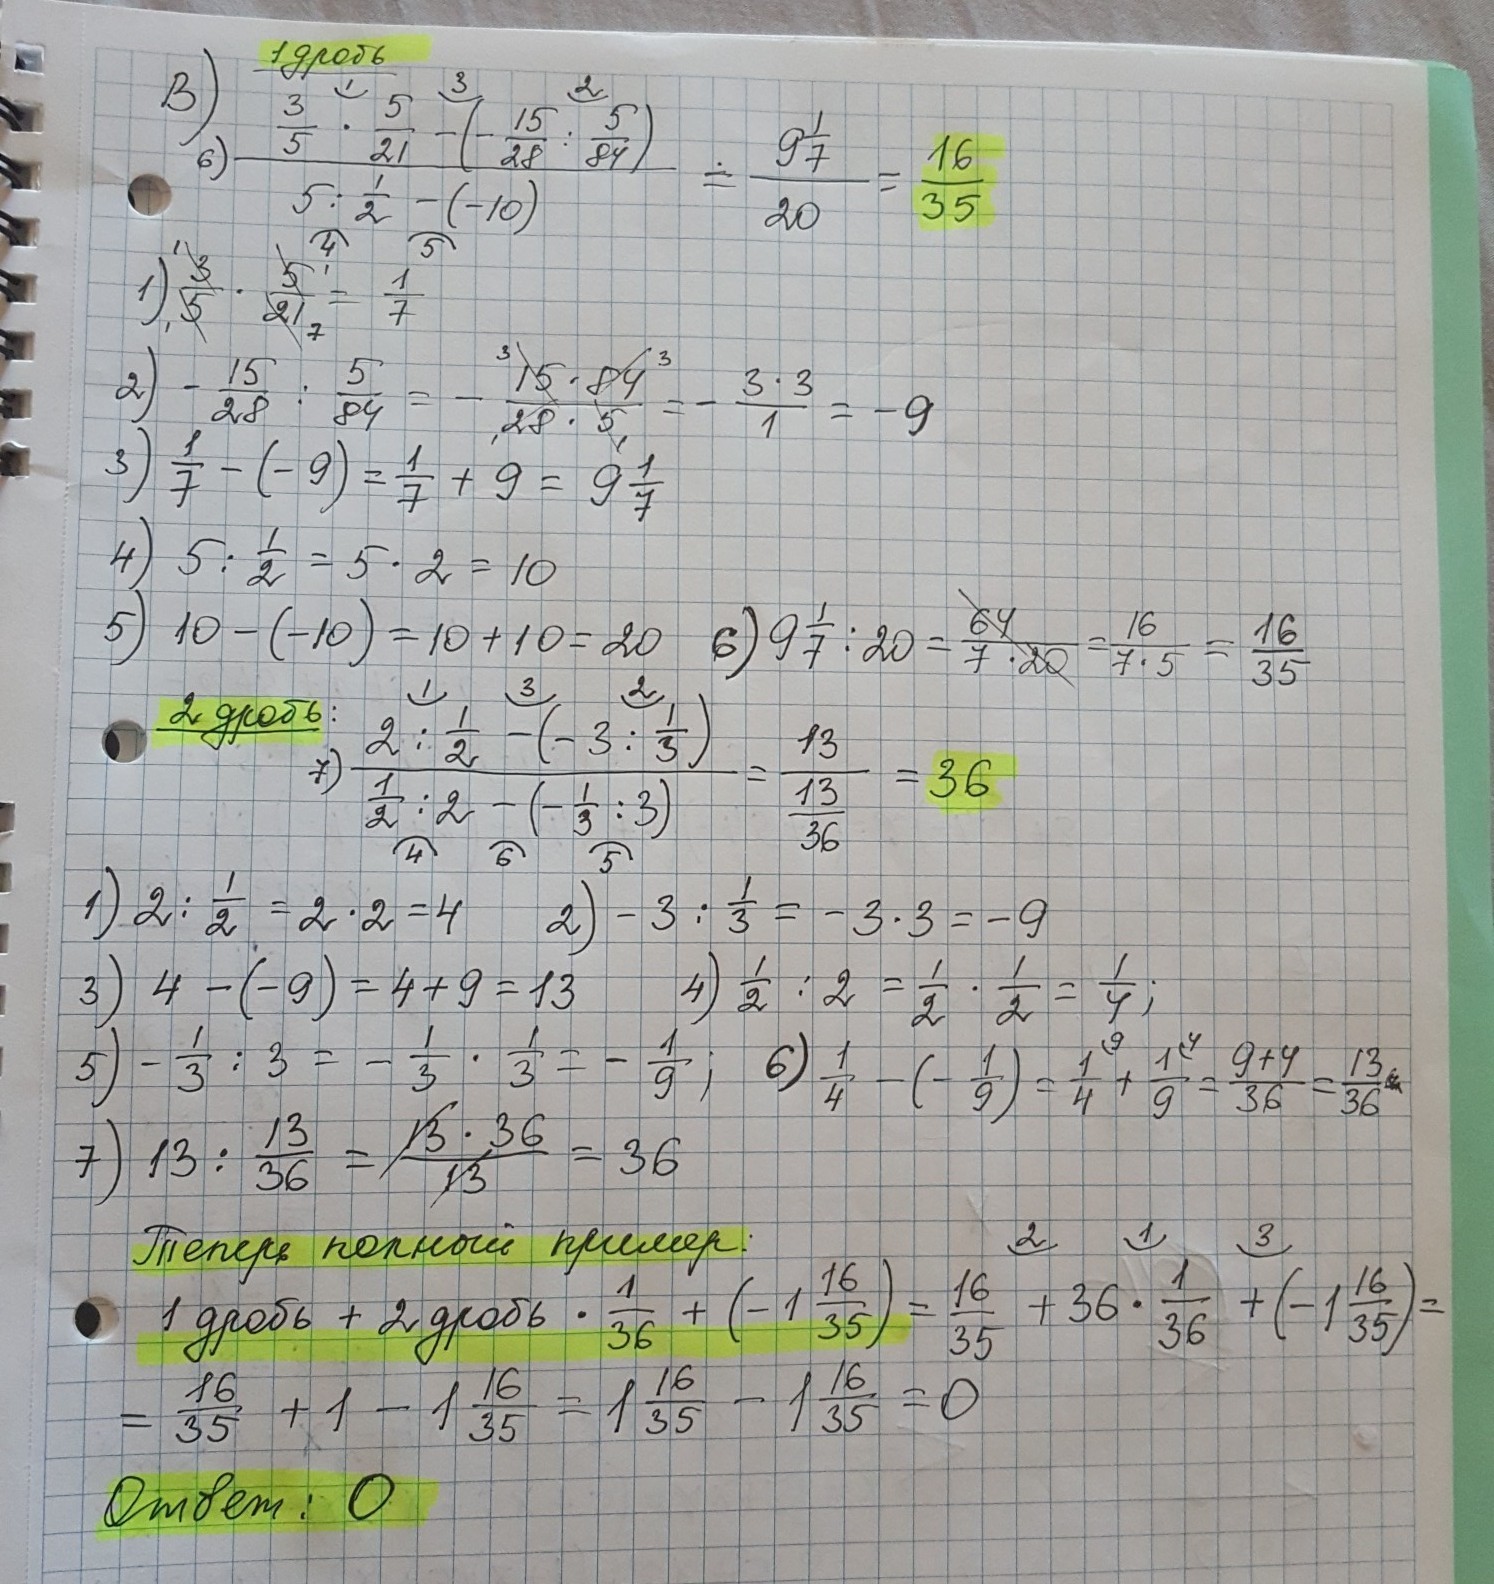 1 дробь
В) 6) (3/5 · 5/21 - (-15/28 : 5/84)) / (5 : 1/2 - (-10)) = 9 1/7 / 20 = 16/35
1) 3/5 · 5/21 = 1/7
2) - 15/28 : 5/84 = - (15 · 84)/(28 · 5) = - (3 · 3)/1 = -9
3) 1/7 - (-9) = 1/7 + 9 = 9 1/7
4) 5 : 1/2 = 5 · 2 = 10
5) 10 - (-10) = 10 + 10 = 20 6) 9 1/7 : 20 = 64/(7 · 20) = 16/(7 · 5) = 16/35
2 дробь: 7) (2 : 1/2 - (-3 : 1/3)) / (1/2 : 2 - (-1/3 : 3)) = 13 / (13/36) = 36
1) 2 : 1/2 = 2 · 2 = 4 2) - 3 : 1/3 = - 3 · 3 = -9
3) 4 - (-9) = 4 + 9 = 13 4) 1/2 : 2 = 1/2 · 1/2 = 1/4;
5) - 1/3 : 3 = - 1/3 · 1/3 = - 1/9; 6) 1/4 - (- 1/9) = 1/4 + 1/9 = (9+4)/36 = 13/36
7) 13 : 13/36 = (13 · 36)/13 = 36
Теперь полный пример:
1 дробь + 2 дробь · 1/36 + (-1 16/35) = 16/35 + 36 · 1/36 + (-1 16/35) =
= 16/35 + 1 - 1 16/35 = 1 16/35 - 1 16/35 = 0
Ответ: 0